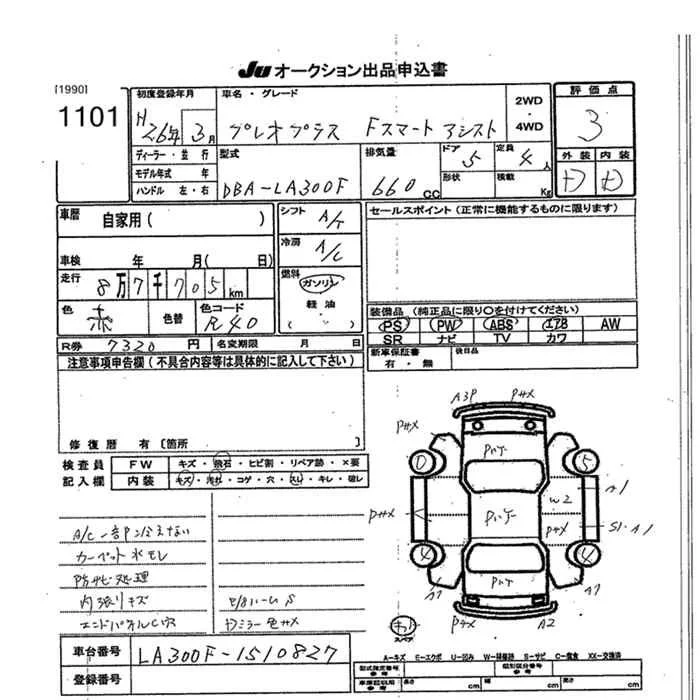 JU オークション出品申込書
[1990]
1101
初度登録年月
H26年3月
車名・グレード
プレオプラス Fスマート アシスト
2WD
・
4WD
評価点
3
ディーラー・並行
モデル年式 年
ハンドル 左・右
型式
DBA-LA300F
排気量
660cc
ドア
5
定員
4人
形状
積載
Kg
外装 内装
D D
車歴
自家用( )
車検 年 月( 日)
走行
8万7千705km
色
赤
色替
色コード
R40
R券 7320円 名変期限 月 日
シフト
A/T
冷房
A/C
燃料
ガソリン
軽油
( )
セールスポイント(正常に機能するものに限ります)
装備品(純正品に限り○を付けてください)
PS PW ABS エアB AW
SR ナビ TV カワ
新車保証書
有・無
後日品
注意事項申告欄(不具合内容等は具体的に記入して下さい)
修復歴 有〔箇所 〕
検査員
記入欄
FW キズ・飛石・ヒビ割・リペア跡・×要
内装 キズ・汚れ・コゲ・穴・スレ・キレ・破レ
カーペット水モレ
防サビ処理
内張りキズ
Dミラー色サメ
A3P Pサメ
Pサメ
Pハゲ
0 5
A1
W2
Pサメ
Pハゲ
Pサメ
S1・A1
4 4
Pハゲ
A1 A1
Pサメ A2
スペア
A-キズ E-エクボ U-凹み W-補修跡 S-サビ C-腐食 XX-交換済
車台番号 LA300F-1510827
登録番号
型式指定番号
参考
類別区分番号
参考
車庫証明用
参考
長さ cm 幅 cm 高さ cm